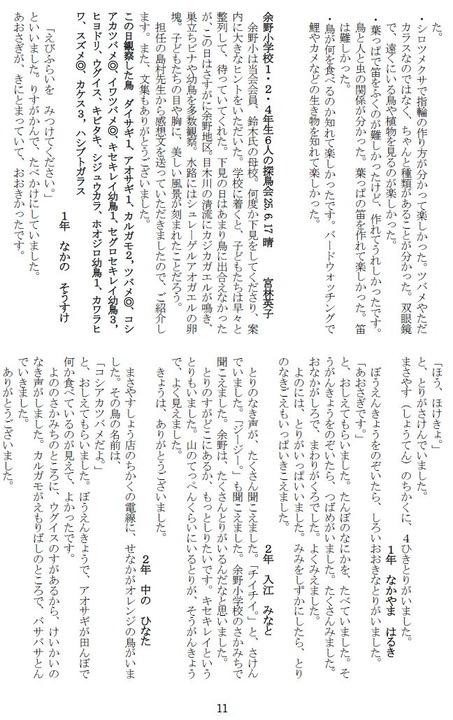 た。
・シロツメクサで指輪の作り方が分かって楽しかった。ツバメやただ
カラスなのではなく、ちゃんと種類があることが分かった。双眼鏡
で、遠くにいる鳥や植物を見るのが楽しかった。
・葉っぱで笛をふくのが難しかったけど、作れてうれしかったです。
鳥と人と虫の関係が分かった。葉っぱの笛を作れて楽しかった。笛
は難しかった。
・鳥が何を食べるのか知れて楽しかったです。バードウォッチングで
鯉やカメなどの生き物を知れて楽しかった。
余野小学校1・2・4年生6人の探鳥会25.6.17 晴　宮林英子
余野小は当会会員、鈴木氏の母校。何度か下見をしてくださり、案
内に大きなヒントをいただいた。学校に着くと、子どもたちは早々と
整列して、待っていてくれた。下見の日はあまり鳥に出合えなかった
が、この日はさすがに余野地区。目木川の清流にカジカガエルが鳴き、
巣立ちビナや幼鳥を多数観察。水路にはシュレーゲルアオガエルの卵
塊。子どもたちの目や胸に、美しい風景が刻まれたことだろう。
担任の島村先生から感想文を送っていただきましたので、ご紹介し
ます。また、文集もありがとうございました。
この日観察した鳥　ダイサギ1、アオサギ1、カルガモ2、ツバメ◎、コシ
アカツバメ◎、イワツバメ◎、キセキレイ幼鳥1、セグロセキレイ幼鳥3、
ヒヨドリ、ウグイス、キビタキ、シジュウカラ、ホオジロ幼鳥1、カワラヒ
ワ、スズメ◎、カケス3、ハシブトガラス
1年　なかの　そうすけ
「えびふらいを　みつけてください。」
といいました。りすがかんで、たべかけにしていました。
あおさぎが、きにとまっていて、おおきかったです。
「ほう、ほけきょ。」
と、とりがさけんでいました。
まさやす（しょうてん）のちかくに、4ひきとりがいました。
1年　なかやま　はるき
ぼうえんきょうをのぞいたら、しろいおおきなとりがいました。
「あおさぎです。」
と、おしえてもらいました。たんぼのなにかを、たべていました。そ
うがんきょうをのぞいたら、つばめがいました。たくさんみました。
おなかがしろで、まわりがくろでした。よくみえました。
よのには、とりがいっぱいいました。みみをしずかにしたら、とり
のなきごえもいっぱいきこえました。
2年　入江　みなと
とりのなき声が、たくさん聞こえました。「チイチイ。」と、さけん
でいました。「ジージー。」も聞こえました。余野小学校のさかみちで
聞こえました。余野は、たくさんとりがいるんだなと思いました。
とりのすがどこにあるか、もっとしりたいです。キセキレイという
とりもいました。山のてっぺんくらいにいるとりが、そうがんきょう
で、よく見えました。
きょうは、ありがとうございました。
2年　中の　ひなた
まさやすしょう店のちかくの電線に、せなかがオレンジの鳥がいま
した。その鳥の名前は、
「コシアカツバメだよ。」
と、おしえてもらいました。ぼうえんきょうで、アオサギが田んぼで
何か食べているのが見えて、よかったです。
よののさかみちのところに、ウグイスのすがあるから、けいかいの
なき声がしました。カルガモがえもりばしのところで、バサバサとん
でいきました。
ありがとうございました。
11